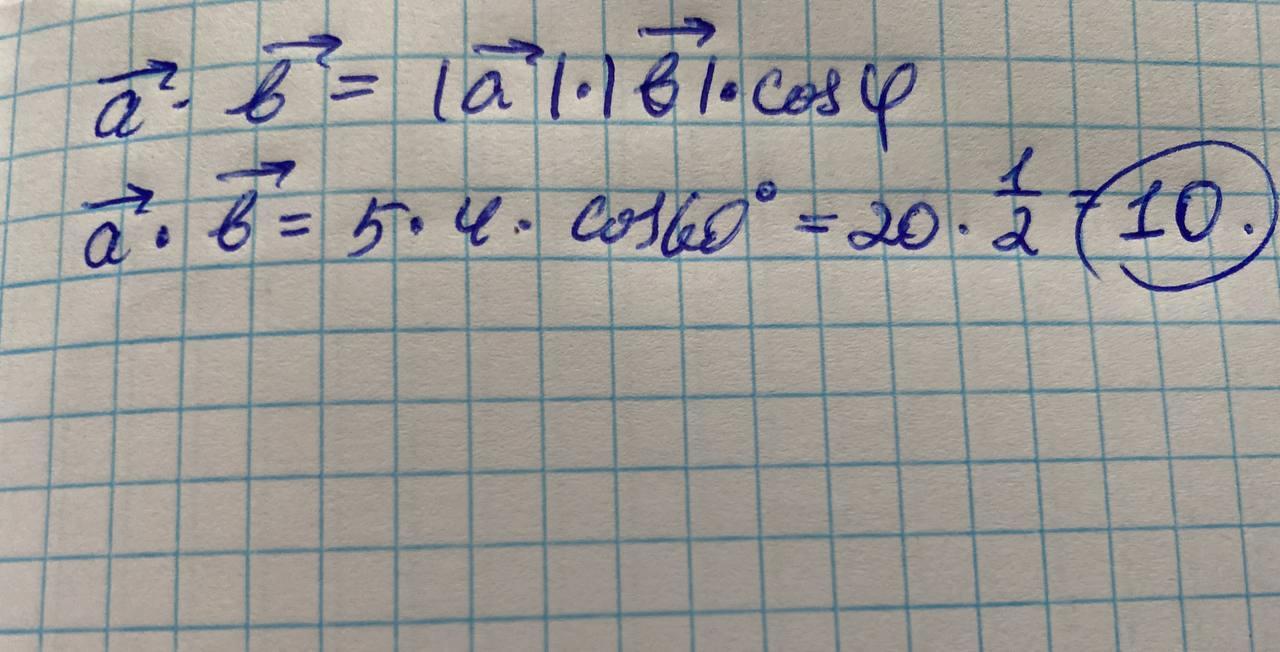 a⃗ · b⃗ = |a⃗| · |b⃗| · cos φ
a⃗ · b⃗ = 5 · 4 · cos60° = 20 · 1/2 = 10.